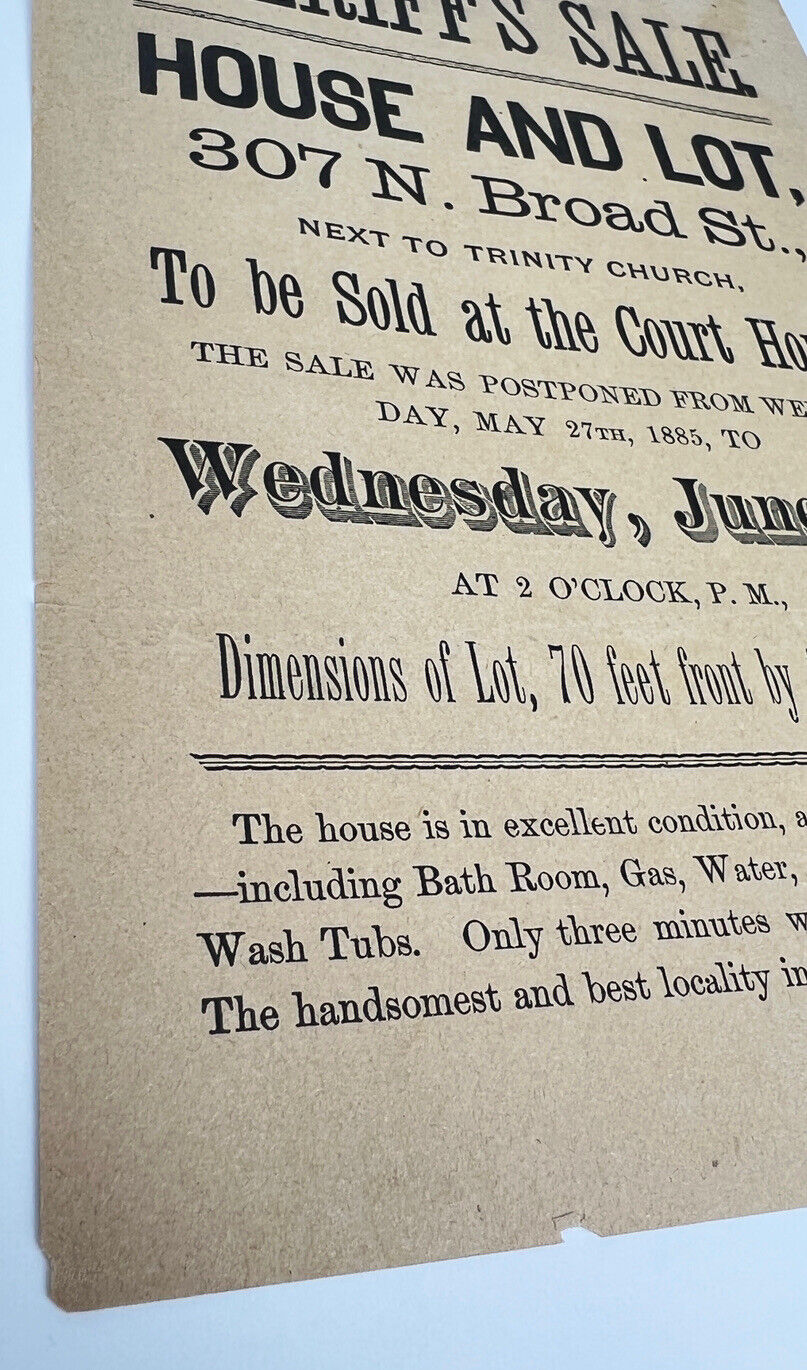 SHERIFF'S SALE.
HOUSE AND LOT,
307 N. Broad St.,
NEXT TO TRINITY CHURCH,
To be Sold at the Court Hou
THE SALE WAS POSTPONED FROM WE
DAY, MAY 27TH, 1885, TO
Wednesday, June
AT 2 O'CLOCK, P. M.,
Dimensions of Lot, 70 feet front by
The house is in excellent condition, a
—including Bath Room, Gas, Water,
Wash Tubs. Only three minutes w
The handsomest and best locality in